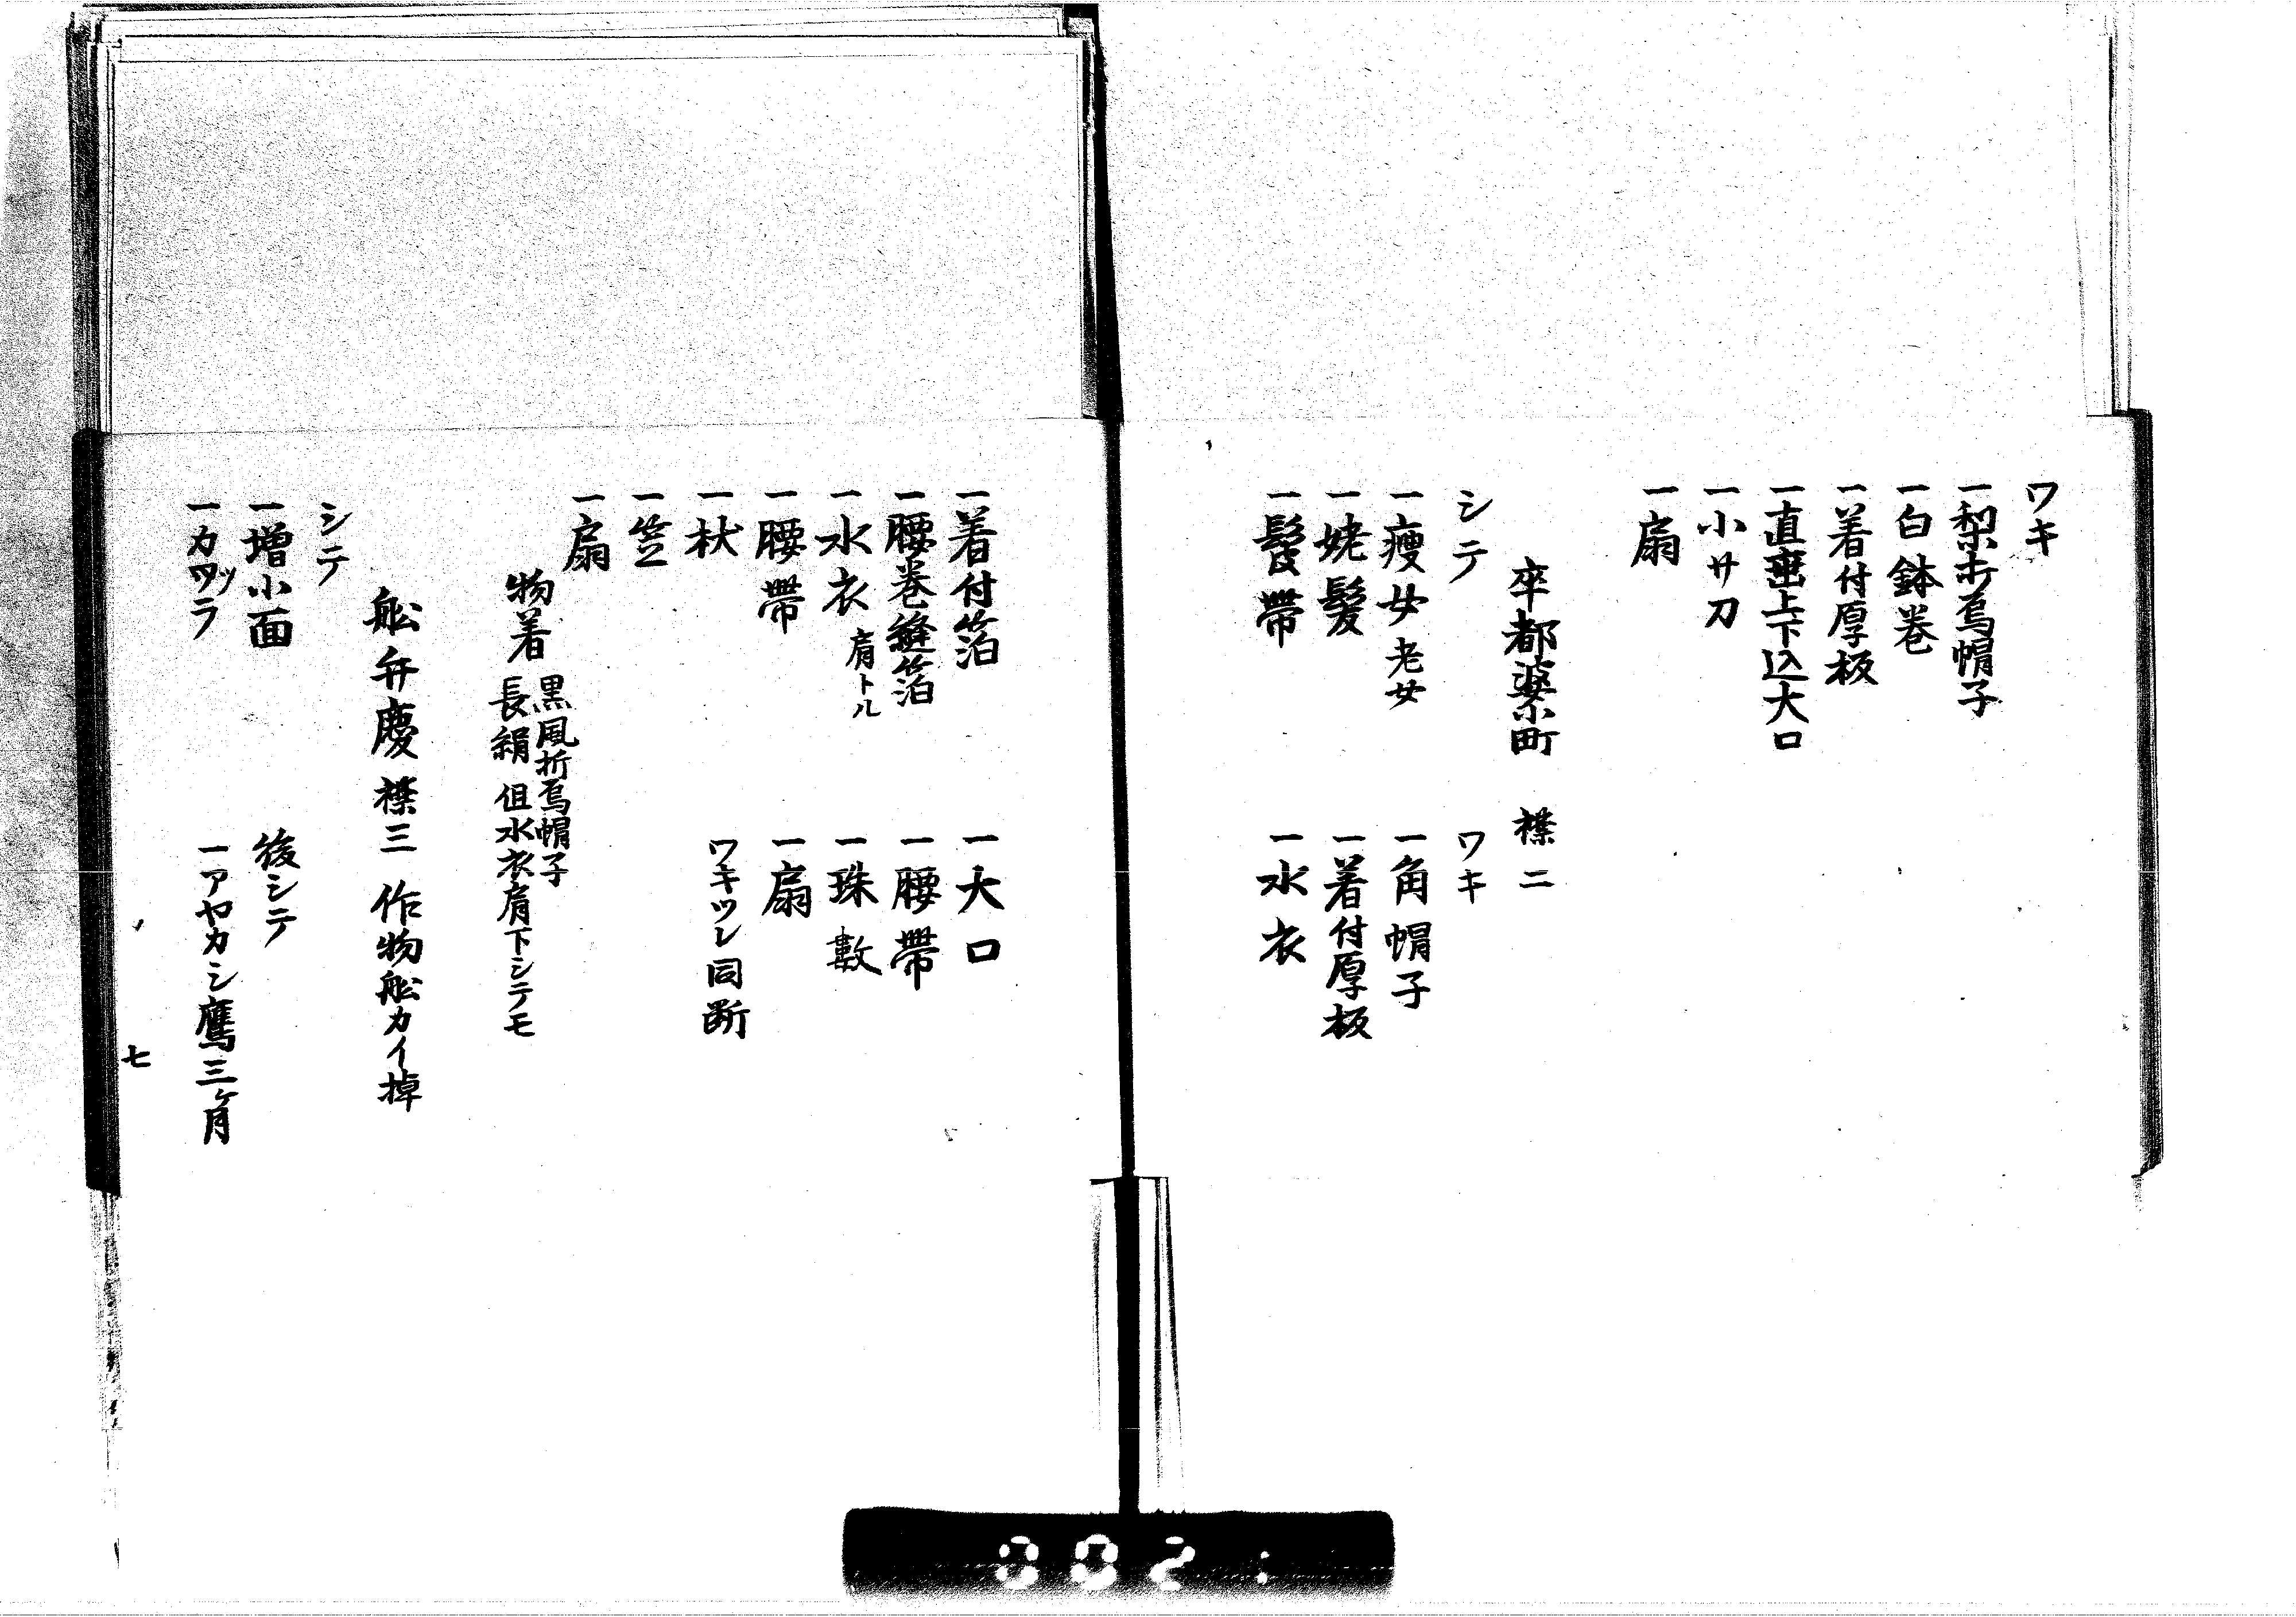 ワキ
一梨ホ烏帽子
一白鉢巻
一着付厚板
一直垂上下込大口
一小サ刀
一扇
卒都婆小町　襟二
シテ
一痩女老女
一姥髪
一鬘帯
ワキ
一角帽子
一着付厚板
一水衣
一着付箔
一腰巻縫箔
一水衣肩トル
一腰帯
一杖
一笠
一扇
一大口
一腰帯
一珠數
一扇
ワキツレ同断
物着
黒風折烏帽子
長絹但水衣肩下シテモ
舩弁慶　襟三　作物舩カイ棹
シテ
一増小面
一カツラ
後シテ
一アヤカシ鷹三ケ月
七